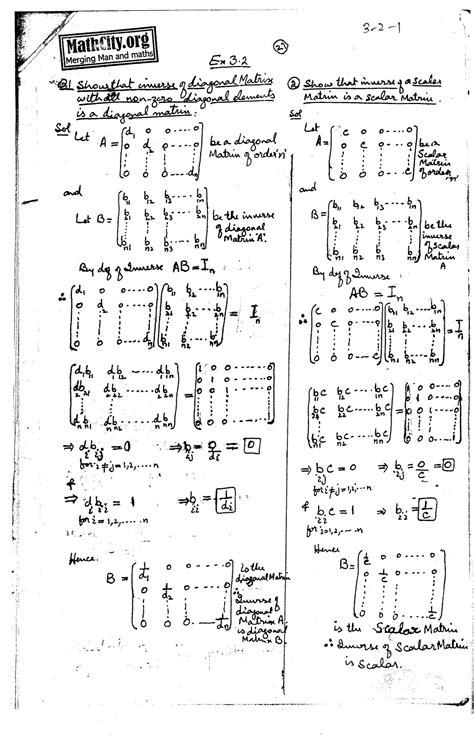 MathCity.org
Merging Man and maths
3-2-1
Ex 3.2
Q1 Show that inverse of diagonal Matrix
with all non-zero diagonal elements
is a diagonal matrix.
Sol
Let
A = [d₁ 0 0 ----- 0
0 d₂ 0 ---- 0
0 0 0 ---- dₙ]
be a diagonal
Matrix of order 'n'
and
Let B = [b₁₁ b₁₂ b₁₃ ---- b₁ₙ
b₂₁ b₂₂ b₂₃ ---- b₂ₙ
bₙ₁ bₙ₂ bₙ₃ ---- bₙₙ]
be the inverse
of diagonal
Matrix 'A'.
By def of Inverse AB = Iₙ
∴ [d₁ 0 0 ---- 0
0 d₂ 0 ---- 0
0 0 0 ---- dₙ] [b₁₁ b₁₂ ---- b₁ₙ
b₂₁ b₂₂ ---- b₂ₙ
bₙ₁ bₙ₂ ---- bₙₙ] = Iₙ
[d₁b₁₁ d₁b₁₂ ---- d₁b₁ₙ
d₂b₂₁ d₂b₂₂ ---- d₂b₂ₙ
dₙbₙ₁ dₙbₙ₂ ---- dₙbₙₙ] = [1 0 0 ---- 0
0 1 0 ---- 0
0 0 0 ---- 1]
⇒ dᵢbᵢⱼ = 0 ⇒ bᵢⱼ = 0/dᵢ = 0
for i ≠ j = 1,2,----n
&
⇒ dᵢbᵢᵢ = 1 ⇒ bᵢᵢ = 1/dᵢ
for i = 1,2,.....n
Hence
B = [1/d₁ 0 0 ---- 0
0 1/d₂ 0 ---- 0
0 0 0 ---- 1/dₙ]
is the
diagonal Matrix
∴
Inverse of
diagonal
Matrix A
is diagonal
Matrix B.
② Show that inverse of a Scalar
Matrix is a Scalar Matrix.
Sol
Let
A = [c 0 0 ---- 0
0 c 0 ---- 0
0 0 0 ---- c]
be a
Scalar
Matrix
of order 'n'
and
B = [b₁₁ b₁₂ b₁₃ ---- b₁ₙ
b₂₁ b₂₂ b₂₃ ---- b₂ₙ
bₙ₁ bₙ₂ bₙ₃ ---- bₙₙ]
be the
inverse
of Scalar
Matrix
A
By def of Inverse
AB = Iₙ
∴ [c 0 0 ---- 0
0 c 0 ---- 0
0 0 0 ---- c] [b₁₁ b₁₂ ---- b₁ₙ
b₂₁ b₂₂ ---- b₂ₙ
bₙ₁ bₙ₂ ---- bₙₙ] = Iₙ
[b₁₁c b₁₂c ---- b₁ₙc
b₂₁c b₂₂c ---- b₂ₙc
bₙ₁c bₙ₂c ---- bₙₙc] = [1 0 0 ---- 0
0 1 0 ---- 0
0 0 0 ---- 1]
⇒ bᵢⱼc = 0 ⇒ bᵢⱼ = 0/c = 0
for i ≠ j = 1,2,---n
& bᵢᵢc = 1 ⇒ bᵢᵢ = 1/c
for i = 1,2,----n
Hence
B = [1/c 0 0 ---- 0
0 1/c 0 ---- 0
0 0 0 ---- 1/c]
is the Scalar Matrix
∴ Inverse of Scalar Matrix
is Scalar.